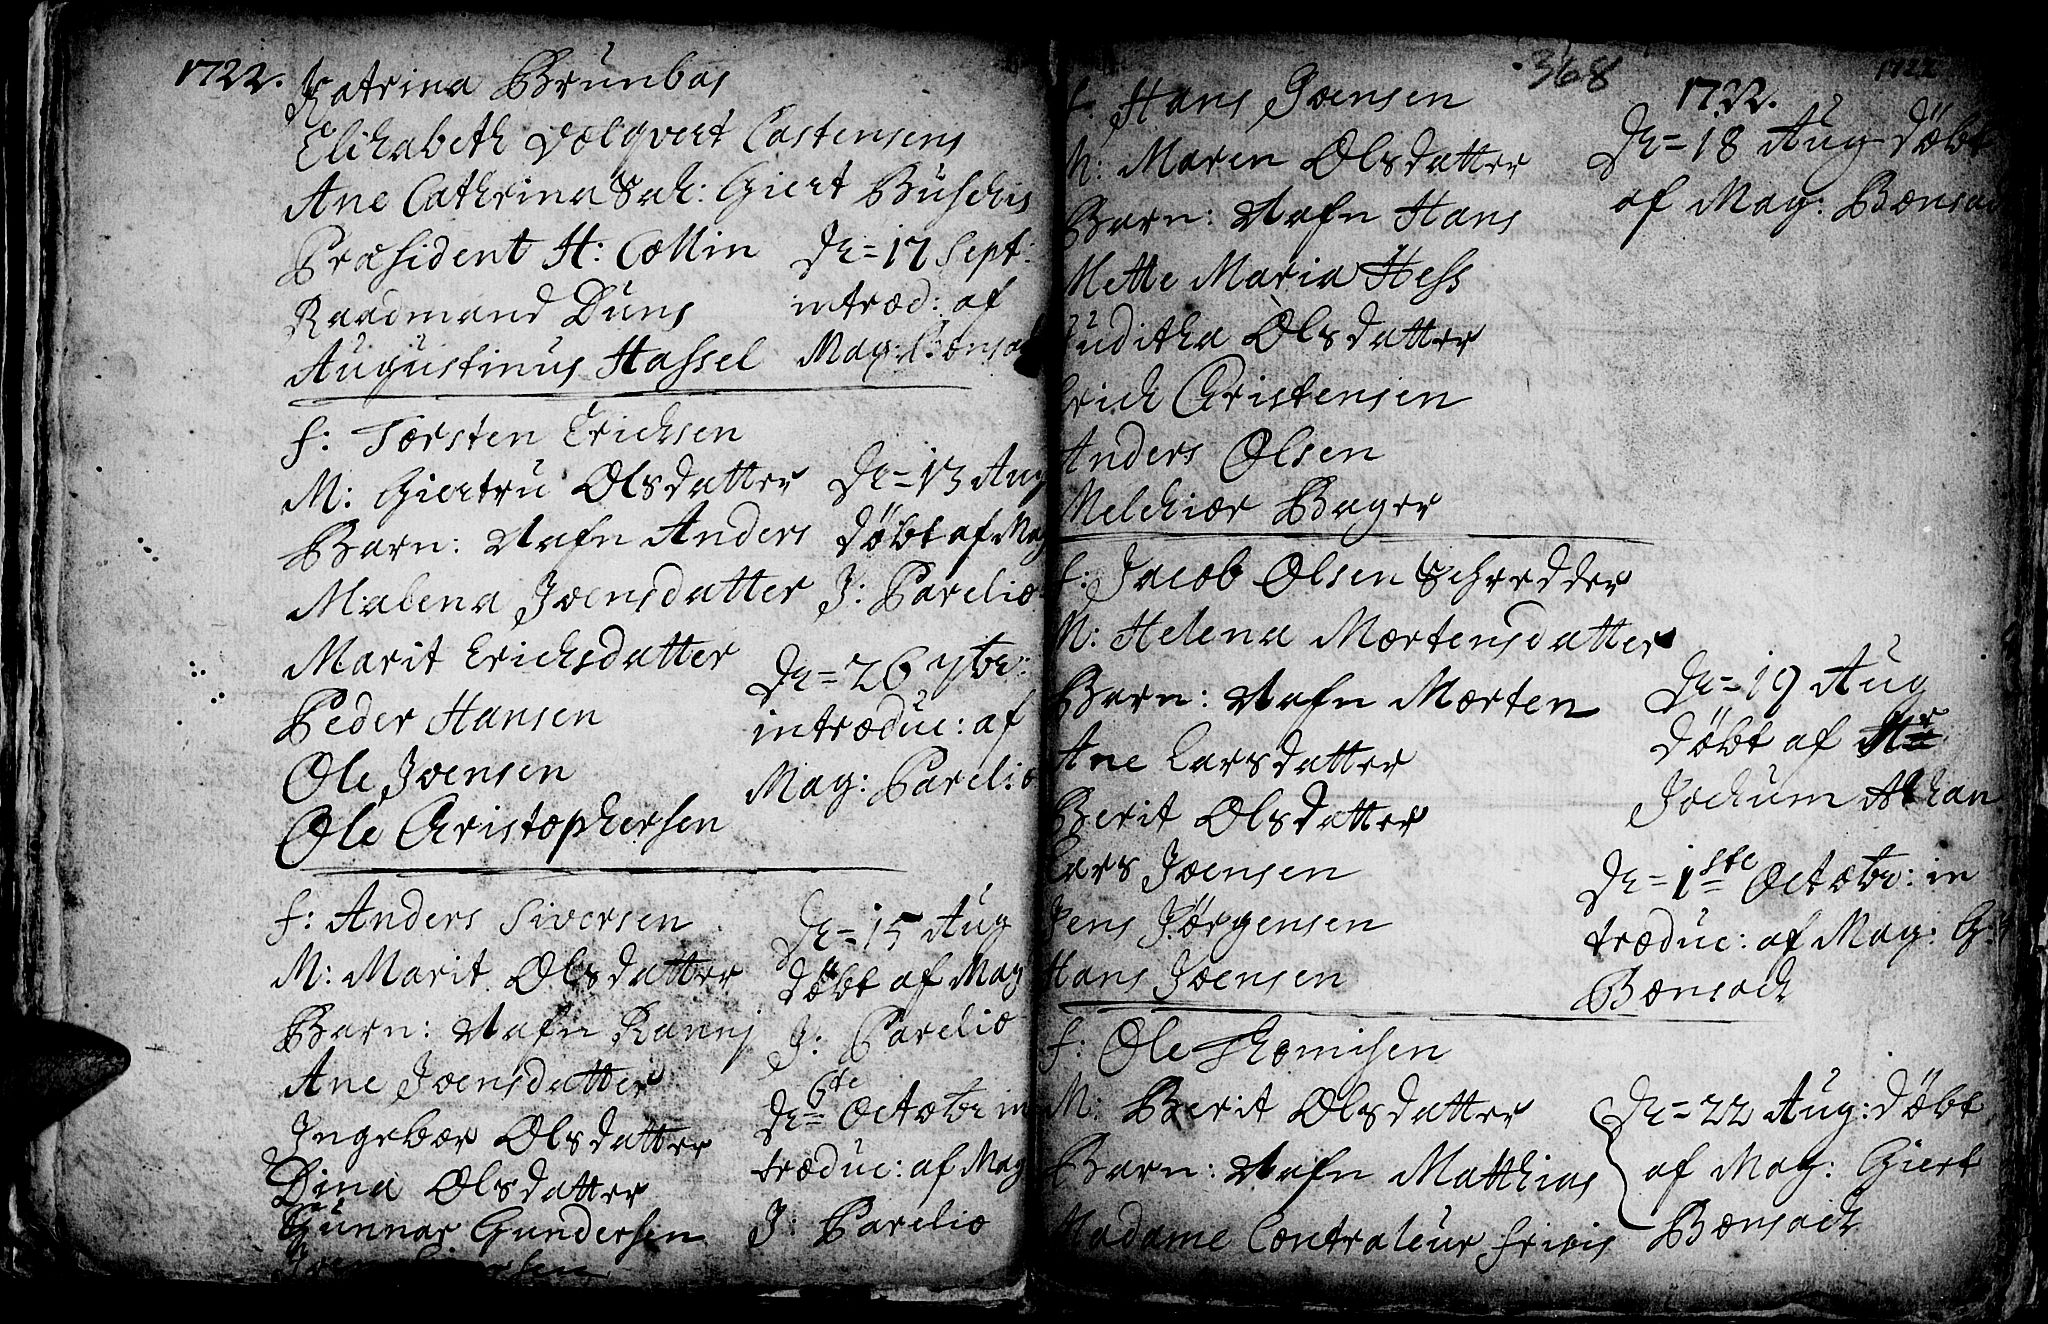 1722.
Katrina Brünbas
Elizhabeth Volqvert Castensens
Ane Cathrina Sal: Giert Büschis
Præsident H: Collin
Raadmand Düns
Augustinus Hassel
d= 17 Sept:
introd: af
Mag: Bonsa
F: Torsten Erichsen
M: Giertru Olsdatter
Barn: Nafn Anders
Malena Joensdatter
Marit Erichsdatter
Peder Hansen
Ole Joensen
Ole Christophersen
d= 13 Aug
døbt af Mag
J: Parelio
d= 26 7br:
introduc: af
Mag: Parelio
F: Anders Siversen
M: Marit Olsdatter
Barn: Nafn Rannj
Ane Joensdatter
Ingebor Olsdatter
Dina Olsdatter
Gunnar Gundersen
d= 15 Aug
døbt af Mag
J: Parelio
d= 6te Octobr in
troduc: af Mag
J: Parelio
368
1722.
1722
F: Hans Joensen
M: Maren Olsdatter
Barn: Nafn Hans
Mette Maria Hess
Juditha Olsdatter
Erich Christensen
Anders Olsen
Melchior Bager
d= 18 Aug døbt
af Mag: Bonsac
F: Jacob Olsen Schredder
M: Helena Mortensdatter
Barn: Nafn Morten
Ane Larsdatter
Berit Olsdatter
Lars Joensen
Jens Jørgensen
Hans Joensen
d= 19 Aug
døbt af Hr
Jochum
d= 1ste Octobr: in
troduc: af Mag: G:
Bonsach
F: Ole Thomisen
M: Berit Olsdatter
Barn: Nafn Matthias
Madame Contraleur Friis
d= 22 Aug: døbt
af Mag: Giert
Bonsach